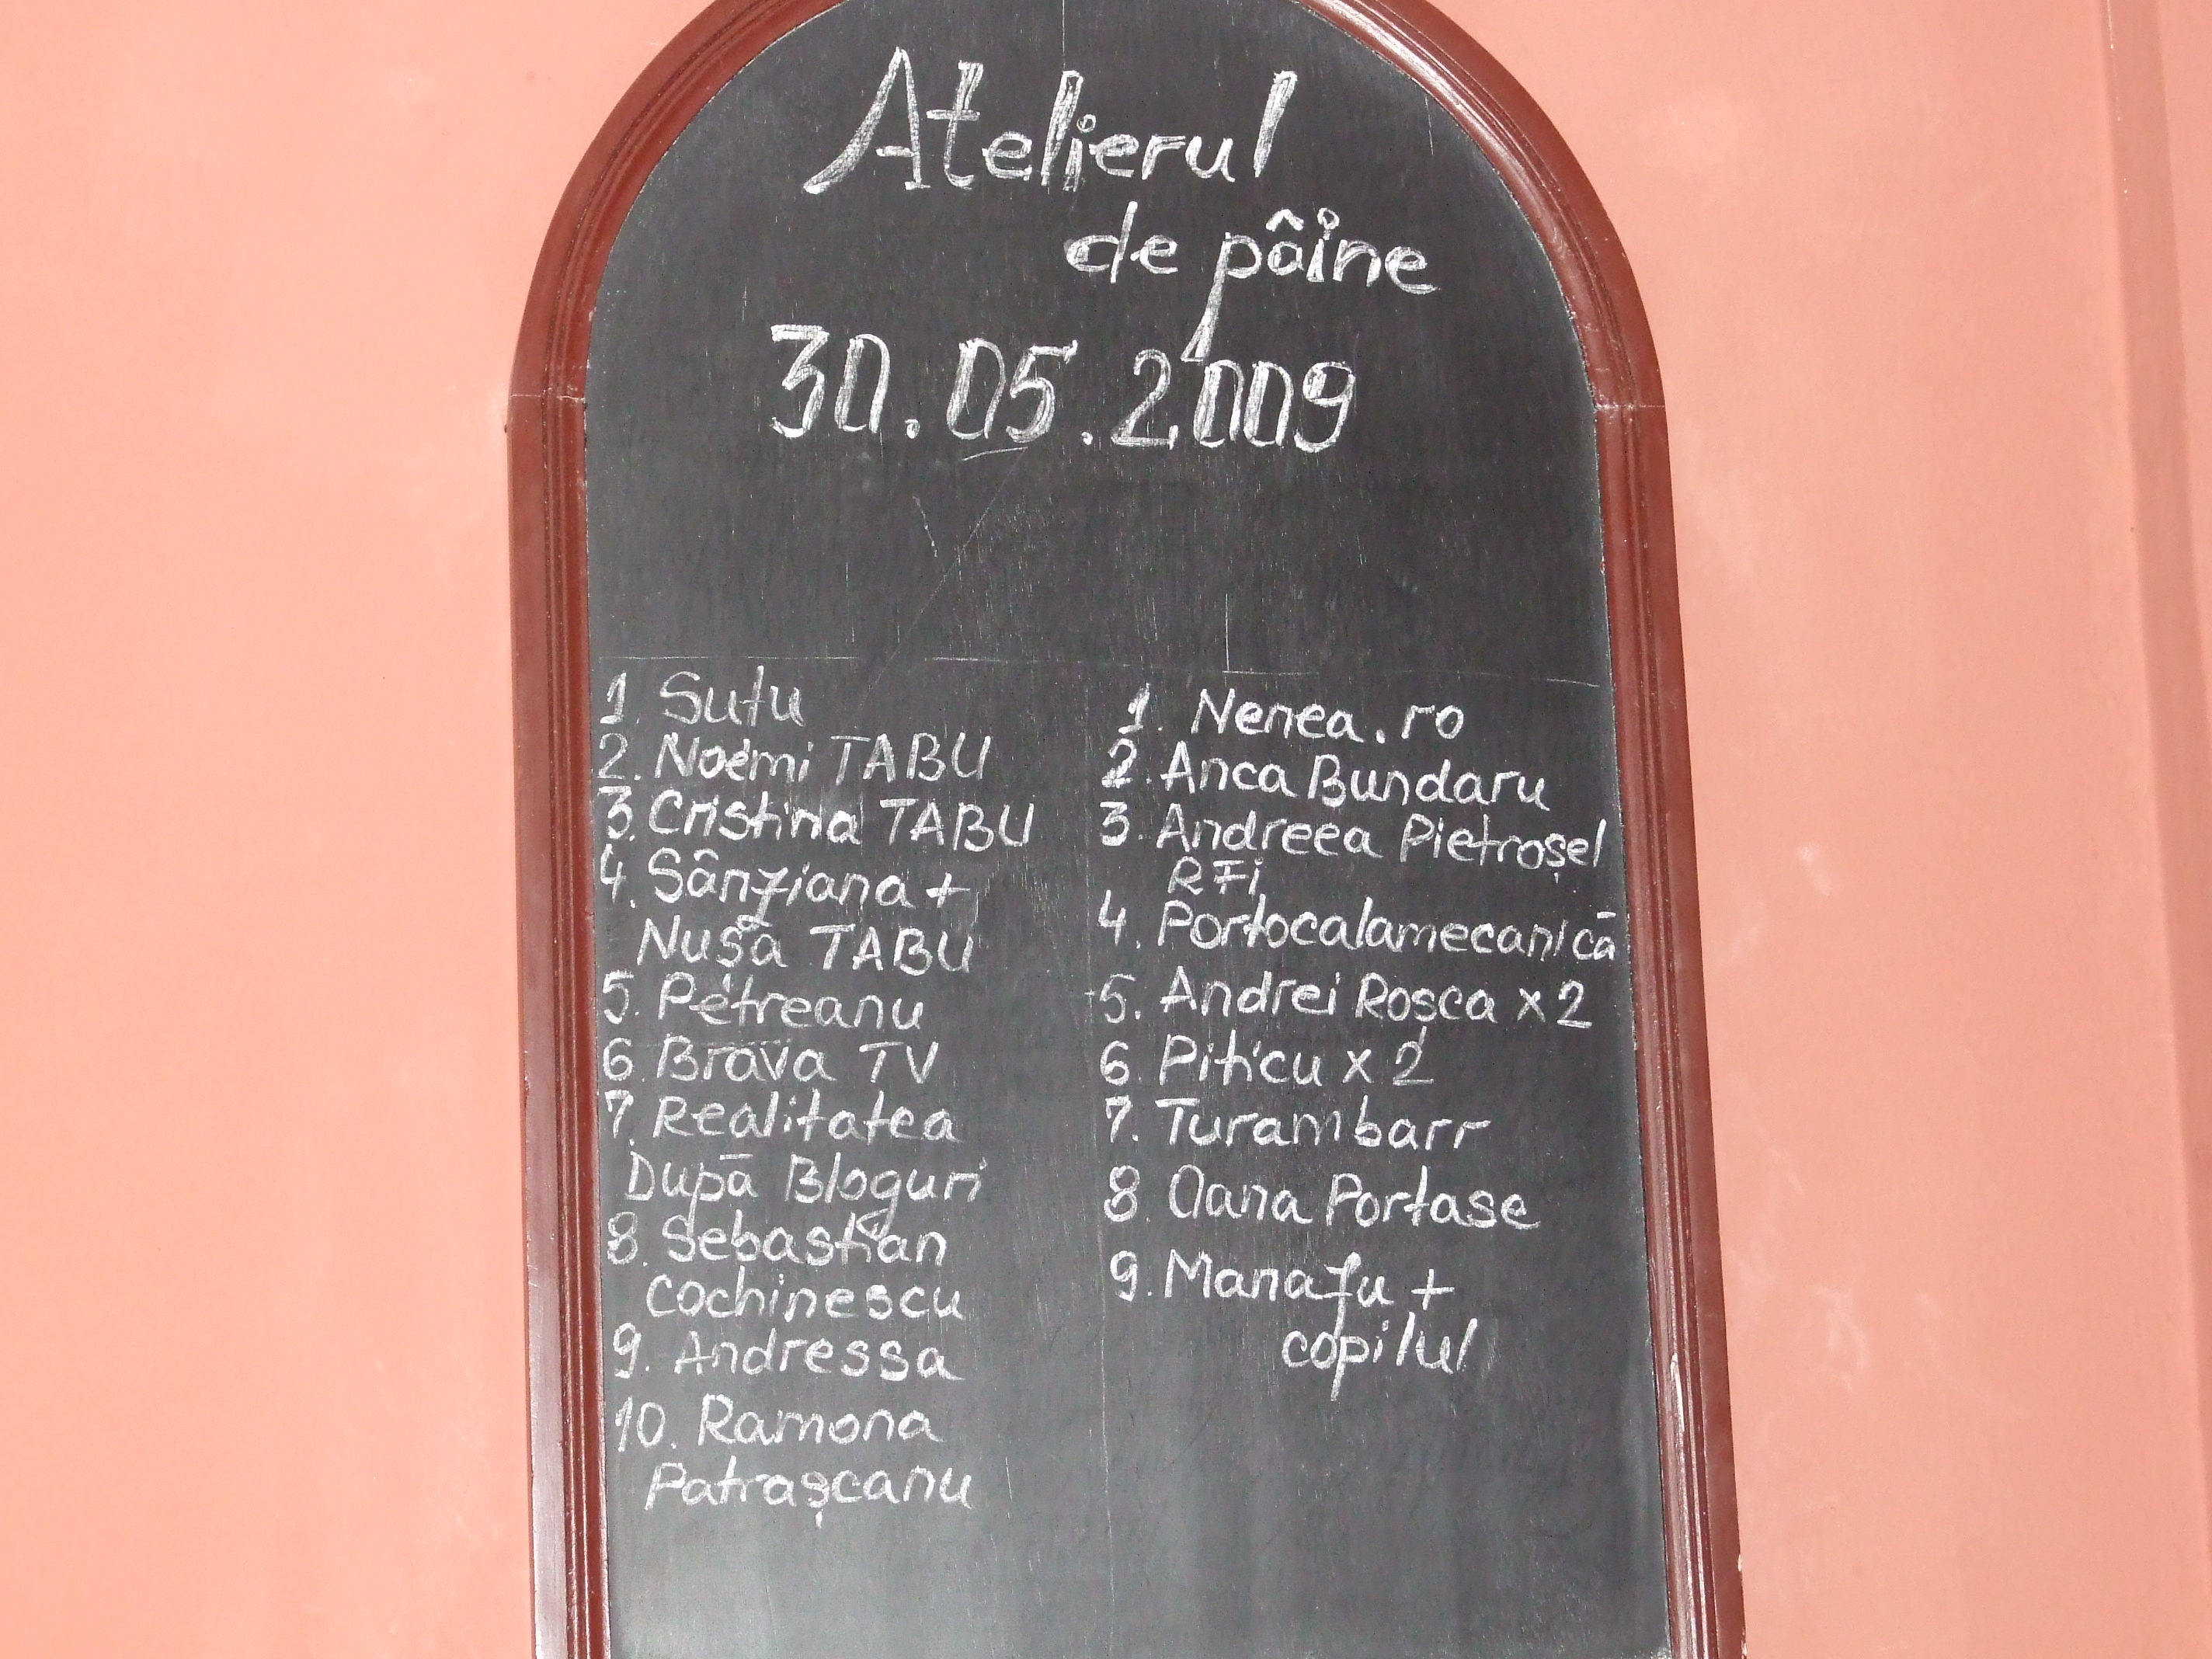 Atelierul
de pâine
30.05.2009
1. Sutu
2. Noemi TABU
3. Cristina TABU
4. Sânziana +
Nușa TABU
5. Petreanu
6. Brava TV
7. Realitatea
După Bloguri
8. Sebastian
Cochinescu
9. Andressa
10. Ramona
Patrașcanu
1. Nenea.ro
2. Anca Bundaru
3. Andreea Pietroșel
RFi
4. Portocalamecanică
5. Andrei Roșca x 2
6. Piticu x 2
7. Turambarr
8. Oana Portase
9. Manafu +
copilul